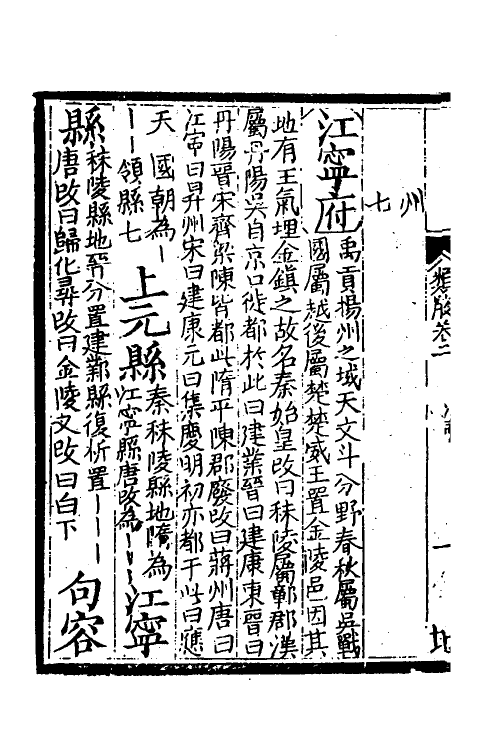 類腋卷二
一
地
州
七
江寧府
禹貢揚州之域天文斗分野春秋屬吳戰
國屬越後屬楚楚威王置金陵邑因其
地有王氣埋金鎮之故名秦始皇改曰秣陵屬鄣郡漢
屬丹陽吳自京口徙都於此曰建業晉曰建康東晉曰
丹陽晉宋齊梁陳皆都此隋平陳郡廢改曰蔣州唐曰
江寧曰昇州宋曰建康元曰集慶明初亦都于此曰應
天 國朝為丨
丨丨領縣七
上元縣
秦秣陵縣地隋為
江寧縣唐改為丨丨丨
江寧
縣
秣陵縣地晉分置建鄴縣復析置丨丨丨
唐改曰歸化尋改曰金陵又改曰白下
句容